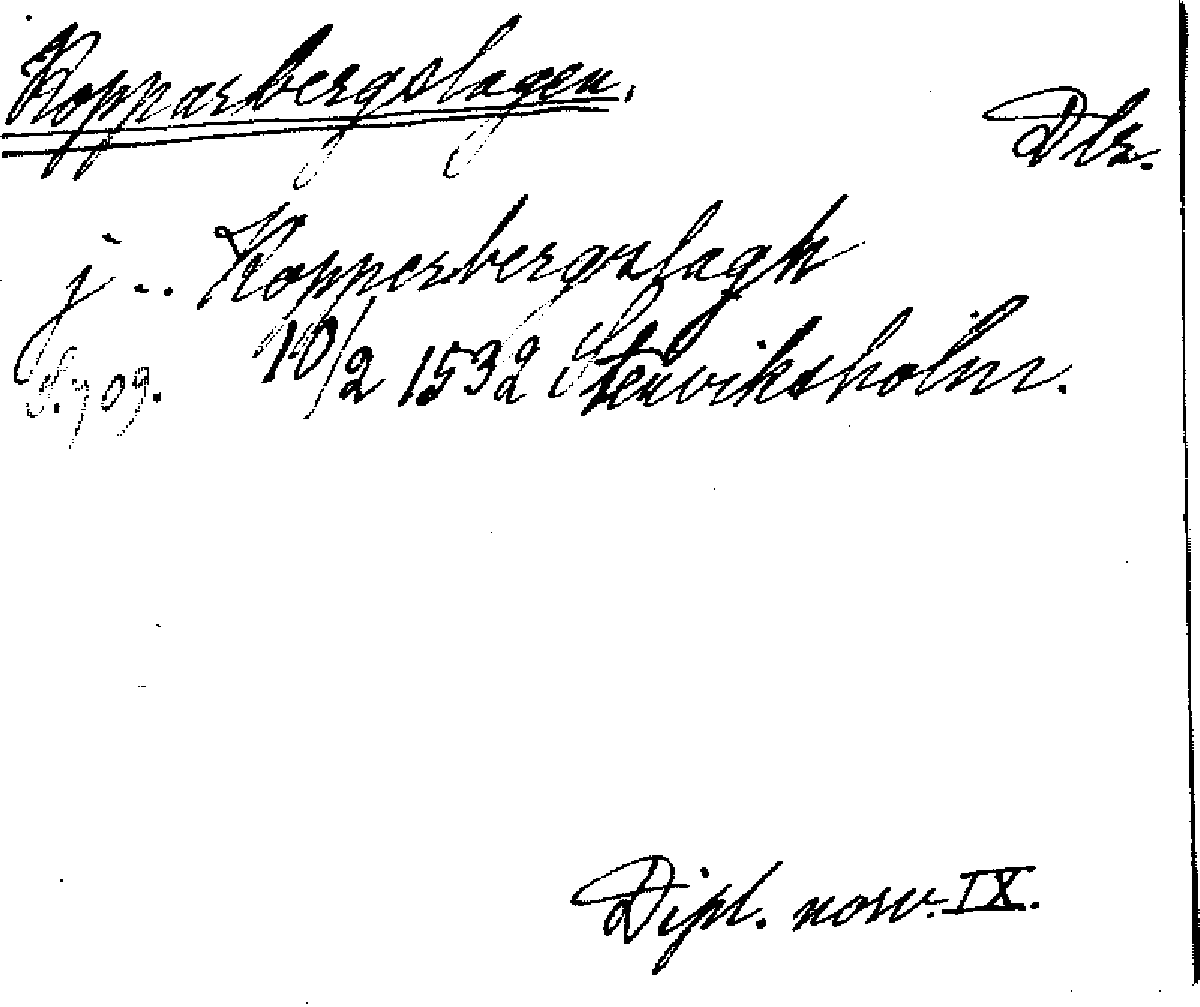 Kopparbergslagen.
Dlr.
j .. Kopperbergslagh
10/2 1532 Stenviksholm.
S. 709.
Dipl. norv. IX.